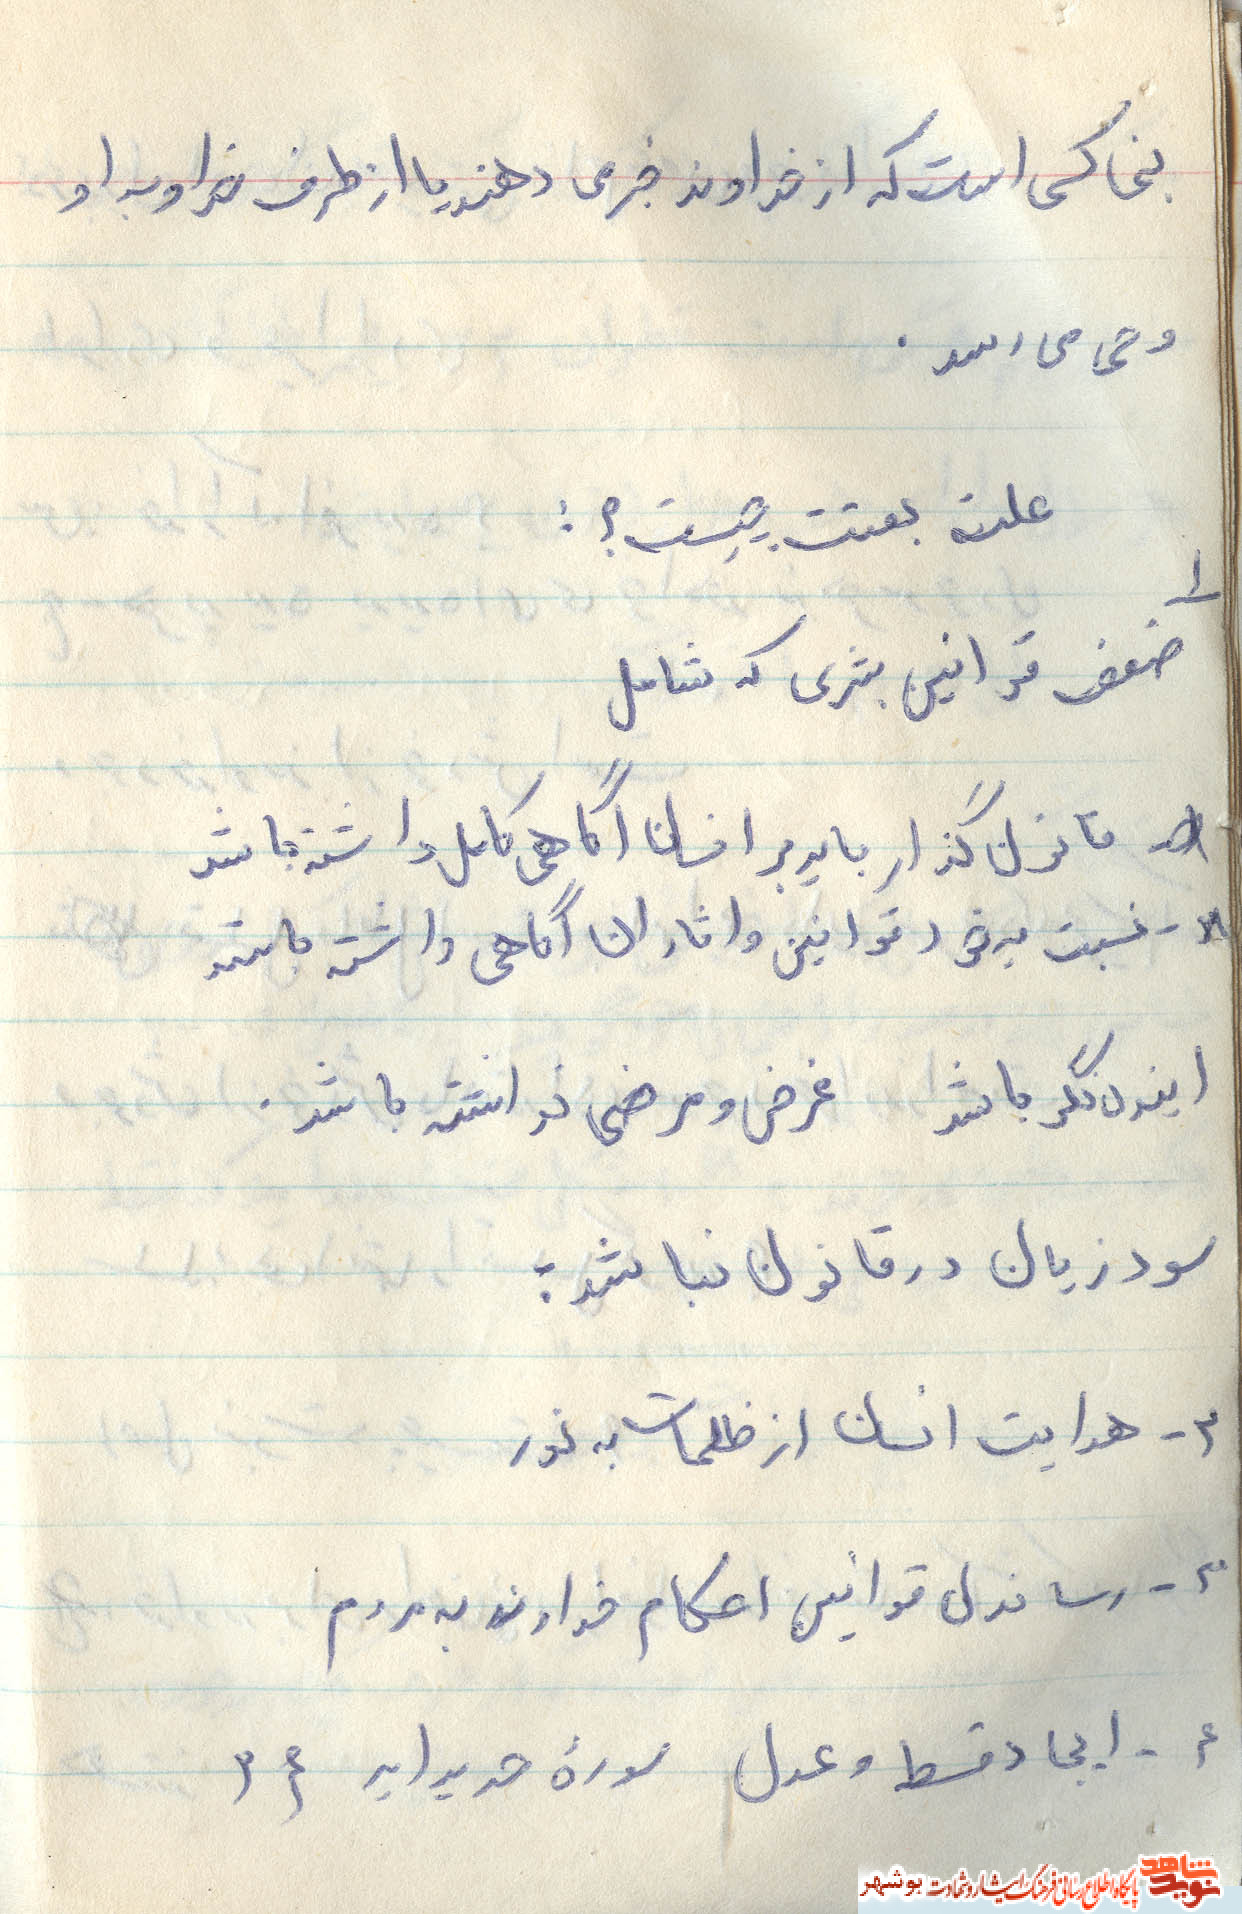 نبی کسی است که از خداوند خبر می دهند یا از طرف خدا و به او
وحی می رسد .
علت بعثت چیست؟ :
۱
ضعف قوانین بشری که شامل
قانون گذار باید بر انسان آگاهی کامل داشته باشد
- نسبت به خود قوانین و اثار ان آگاهی داشته باشد
ایند نگر باشد غرض و مرضی نداشته باشد .
سود زیان در قانون نباشد :
۲- هدایت انسان از ظلمات به نور
۳- رساندن قوانین احکام خداوند به مردم
۴- ایجاد قسط و عدل سورۀ حدید ایه
نوید شاهد پایگاه اطلاع رسانی فرهنگ ایثار و شهادت بوشهر